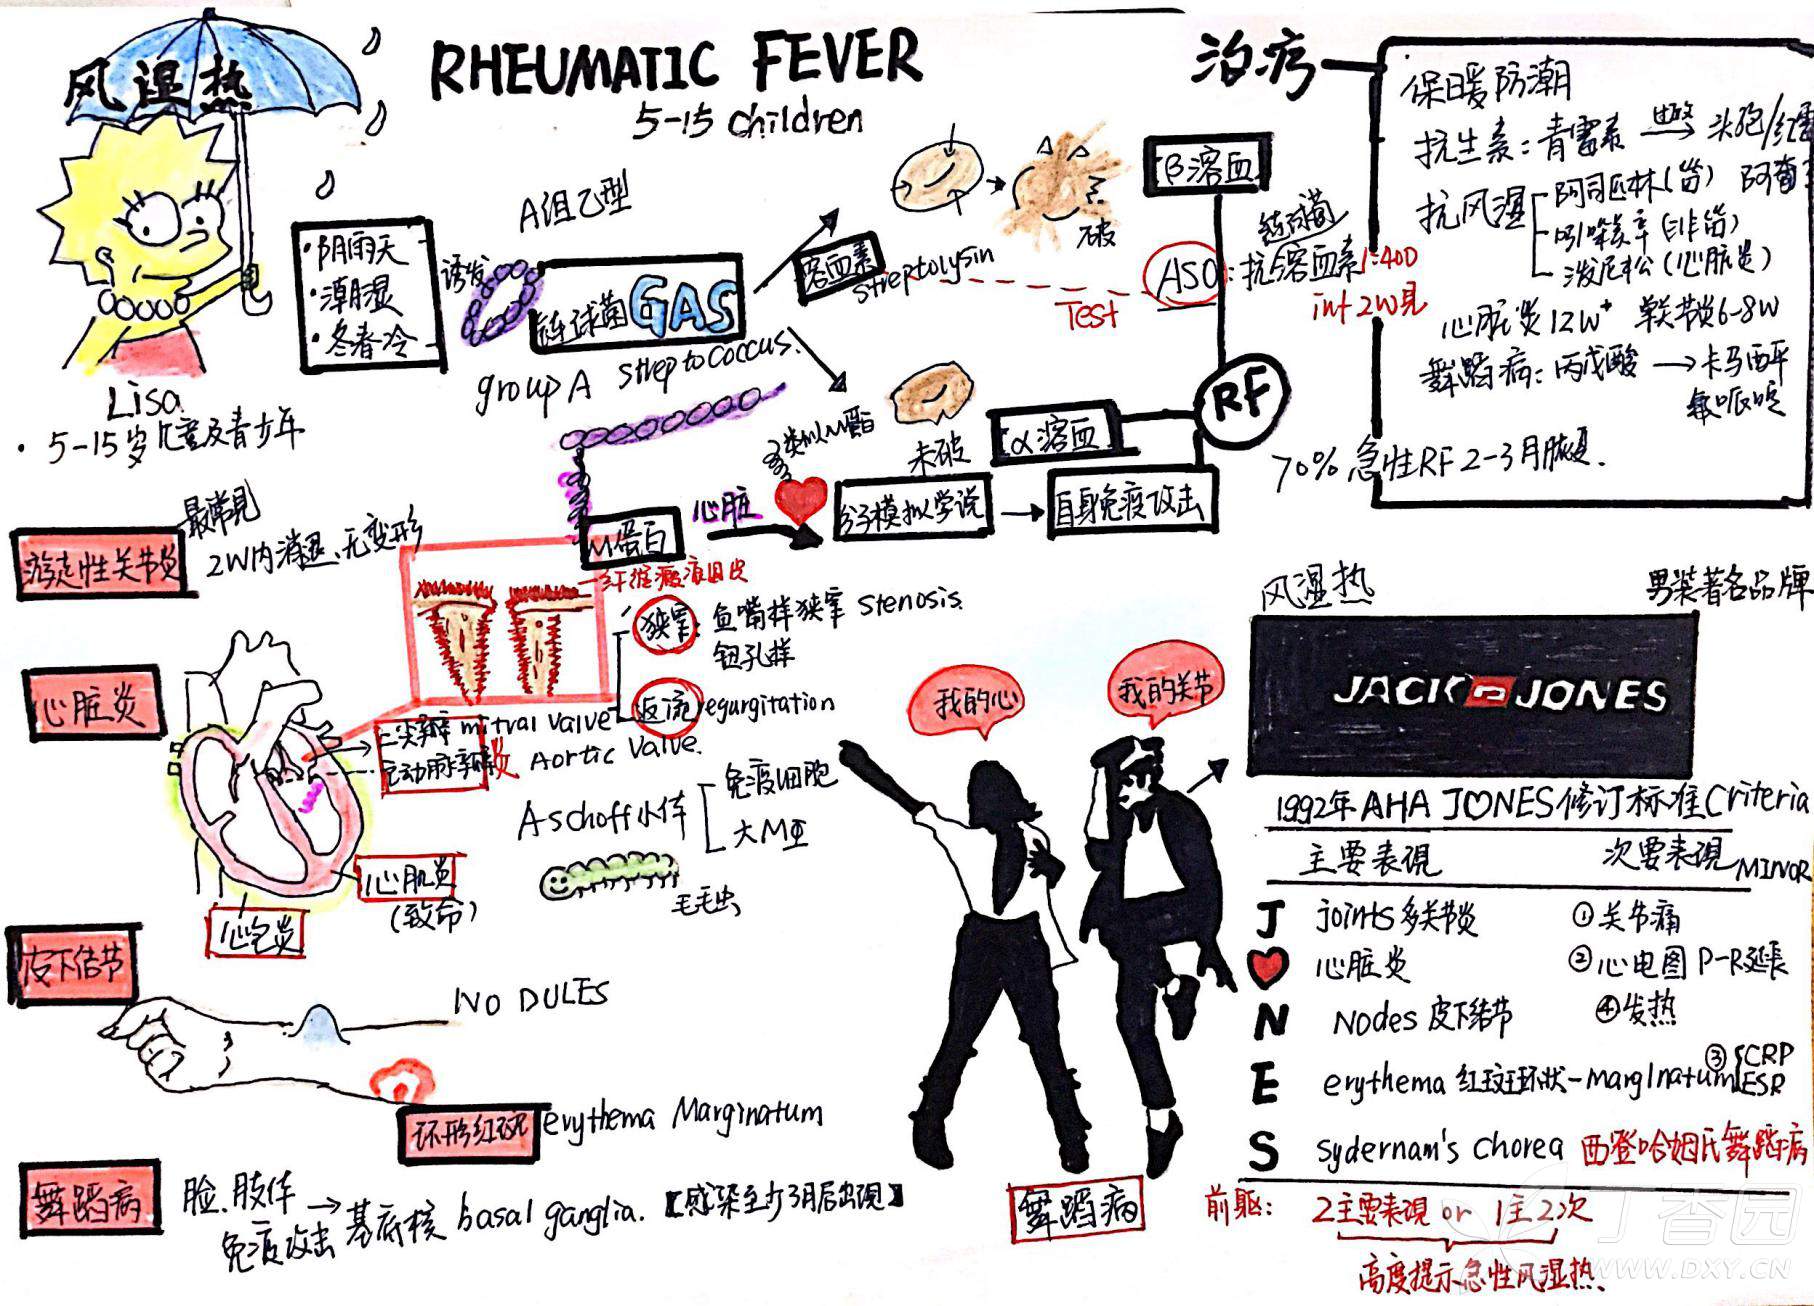 风湿热
RHEUMATIC FEVER
5-15 children
Lisa
· 5-15岁儿童及青少年
· 阴雨天
· 潮湿
· 冬春冷
诱发
A组乙型
链球菌 GAS
group A streptococcus.
溶血素
streptolysin
破
Test
β溶血
ASO: 抗溶血素 1:400
链球菌
int 2W见
RF
α溶血
未破
类似M蛋白
M蛋白
心脏
分子模拟学说
自身免疫攻击
治疗
保暖防潮
抗生素: 青霉素 头孢/红霉
抗风湿
阿司匹林(苗)
吲哚美辛(非苗)
泼尼松(心脏炎)
心脏炎12W+ 单关节炎6-8W
舞蹈病: 丙戊酸 → 卡马西平
70% 急性RF 2-3月恢复.
游走性关节炎
最常见
2W内消退、无变形
心脏炎
狭窄: 鱼嘴样狭窄 Stenosis.
钮孔样
返流 regurgitation
二尖瓣 mitral valve
主动脉瓣炎 Aortic Valve.
Aschoff小体
免疫细胞
大MΦ
毛毛虫
心肌炎
(致命)
心包炎
皮下结节
NODULES
环形红斑 erythema Marginatum
舞蹈病
脸.肢体
免疫攻击 → 基底核 basal ganglia.【感染至少3月后出现】
我的心
我的关节
舞蹈病
风湿热
男装著名品牌
JACK JONES
1992年AHA JONES修订标准Criteria
主要表现 次要表现 MINOR
J joints 多关节炎 ①关节痛
心脏炎 ②心电图 P-R延長
N Nodes 皮下结节 ④发热
E erythema 红斑环状-marginatum ③ CRP
ESR
S sydernam's chorea 西登哈姆氏舞蹈病
前驱: 2主要表现 or 1主2次
高度提示急性风湿热.
丁香园
WWW.DXY.CN